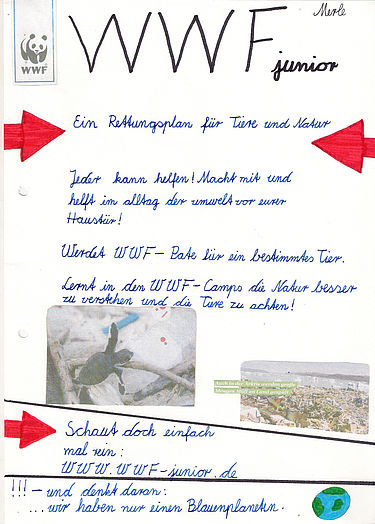 Merle
WWF
WWF
junior
Ein Rettungsplan für Tiere und Natur
Jeder kann helfen! Macht mit und
helft im alltag der umwelt vor eurer
Haustür!
Werdet WWF - Pate für ein bestimmtes Tier.
Lernt in den WWF - Camps die Natur besser
zu verstehen und die Tiere zu achten!
Auch in der Arktis werden große
Schaut doch einfach
mal rein:
WWW.WWF-junior.de
!!! - und denkt daran:
... wir haben nur einen Blauenplaneten.